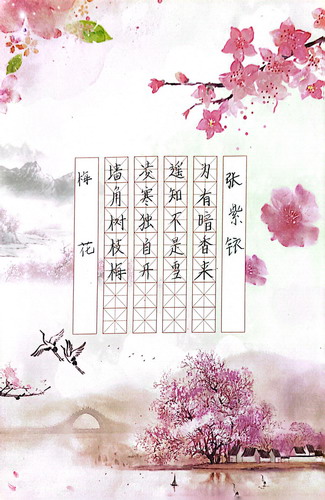 梅花
墙角树枝梅
凌寒独自开
遥知不是雪
为有暗香来
张紫